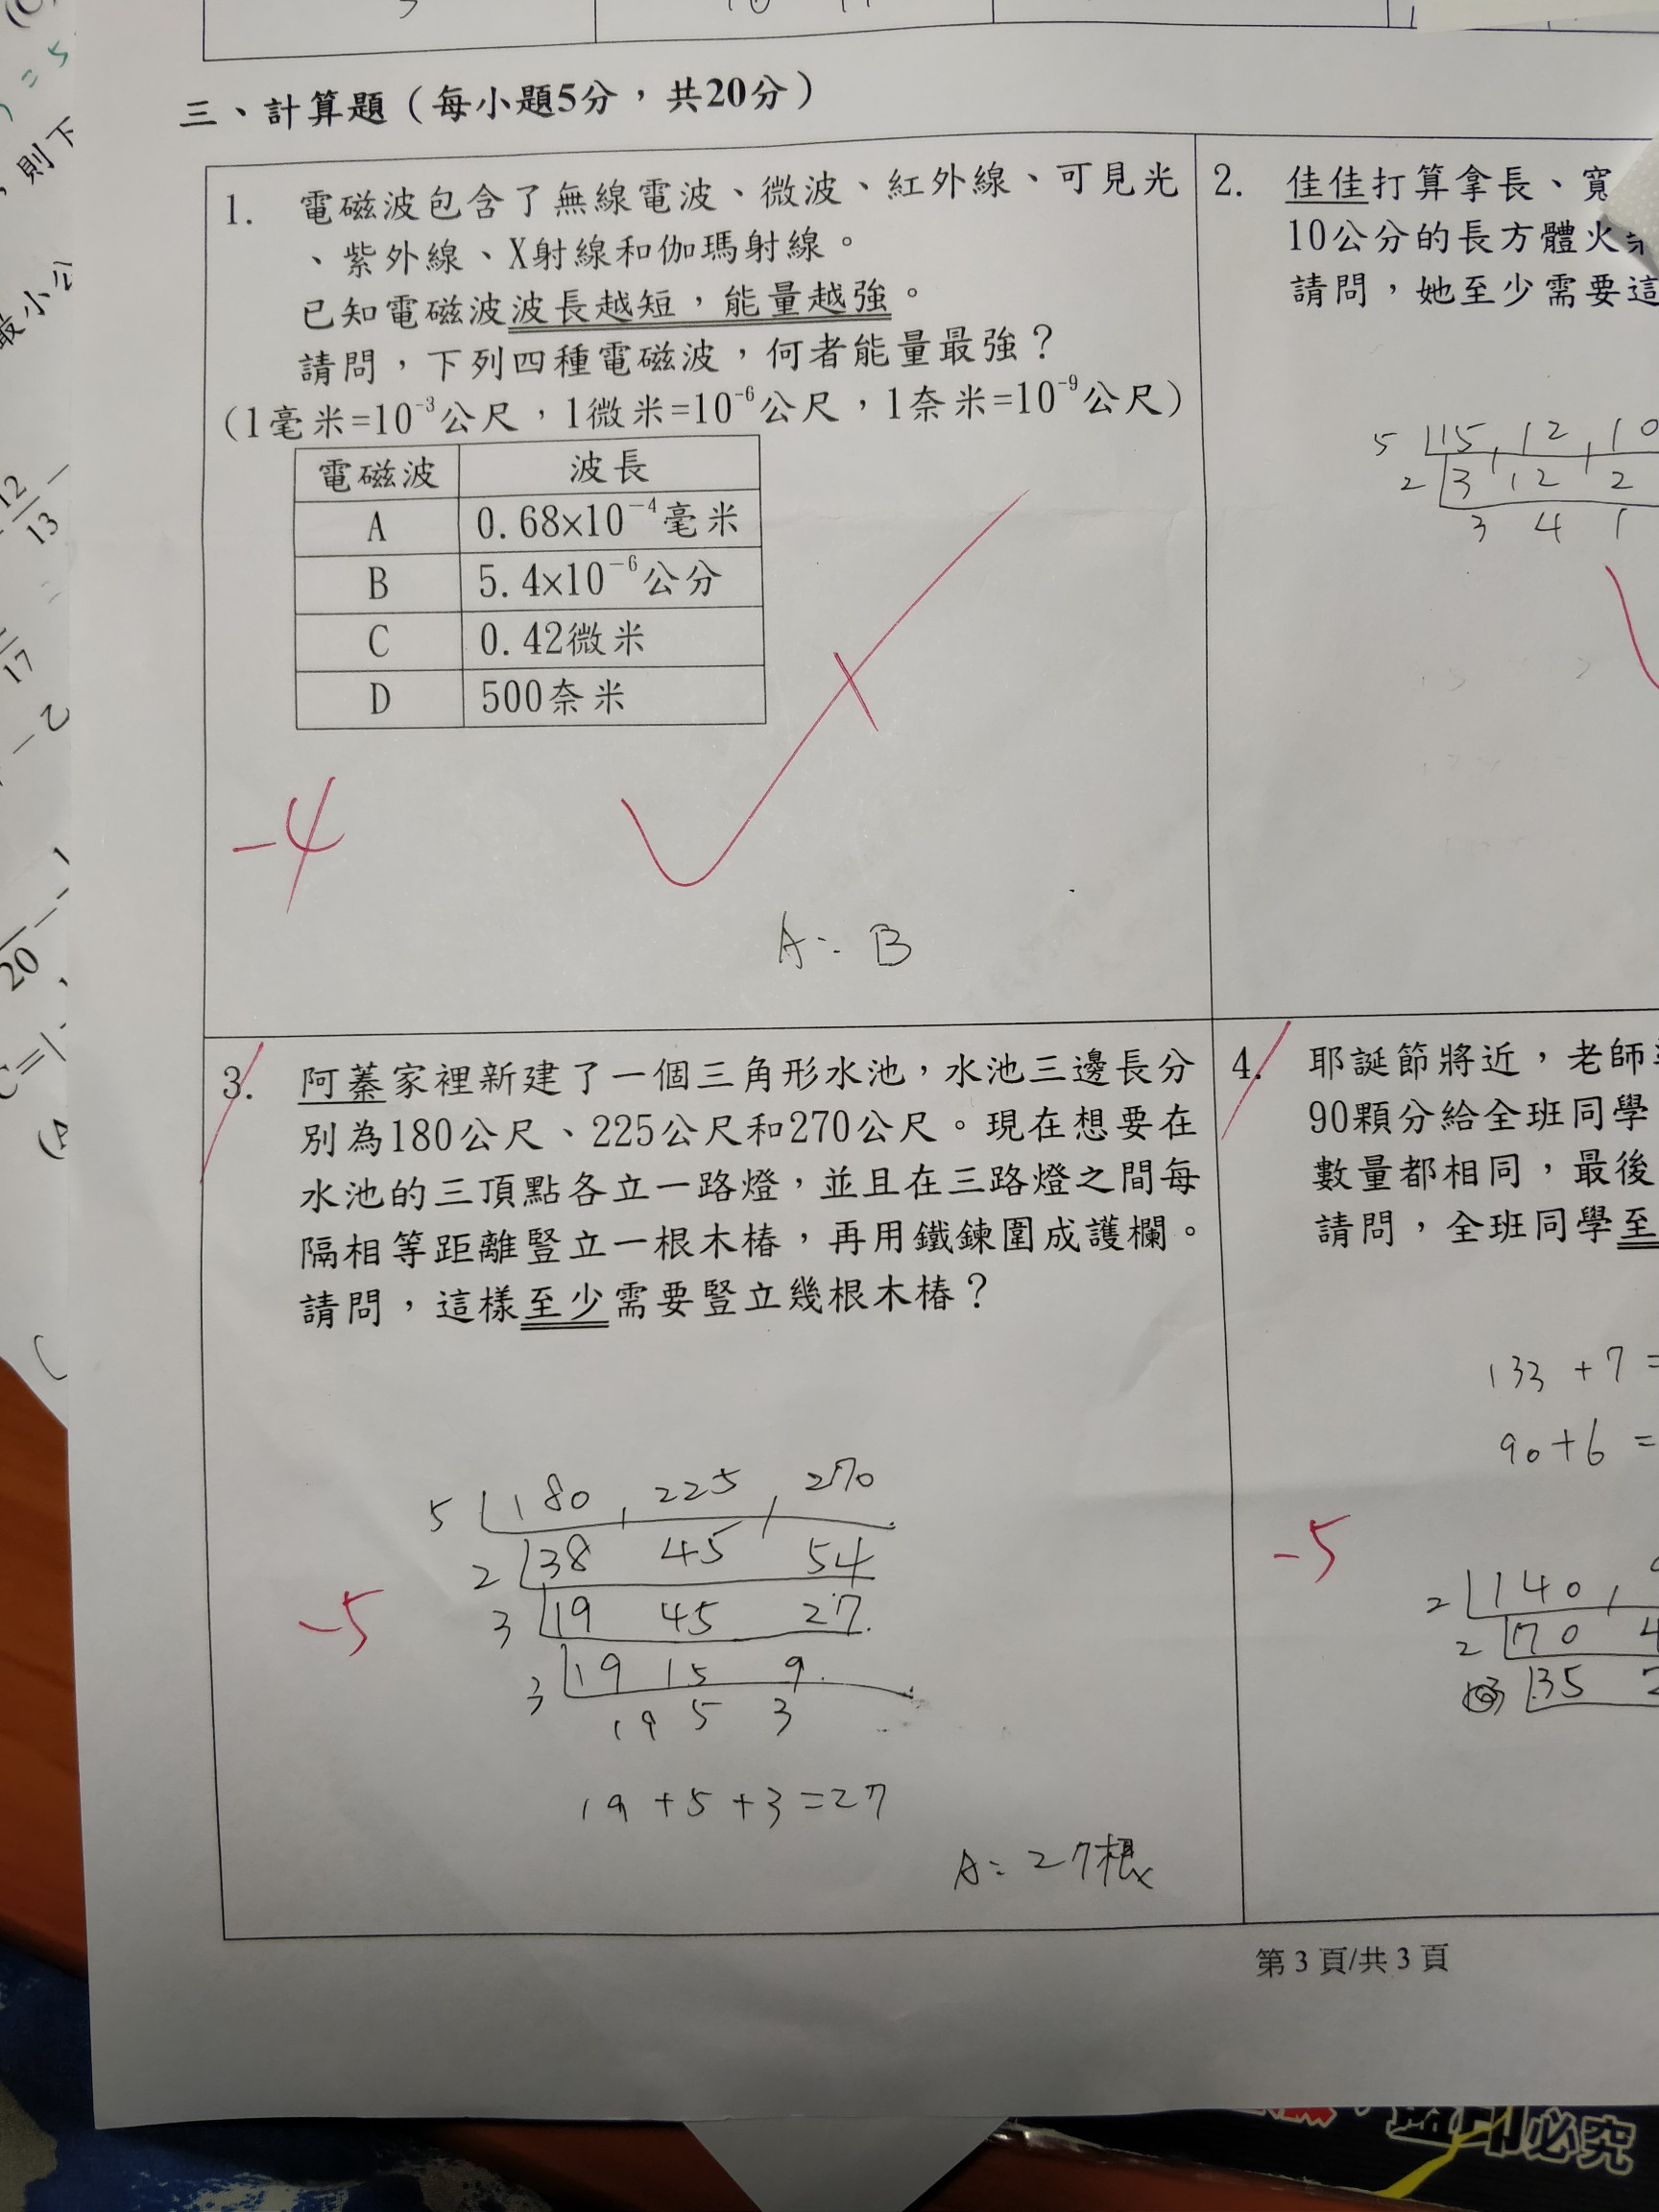 三、計算題（每小題5分，共20分）
1. 電磁波包含了無線電波、微波、紅外線、可見光
、紫外線、X射線和伽瑪射線。
已知電磁波波長越短，能量越強。
請問，下列四種電磁波，何者能量最強？
(1毫米=10⁻³公尺，1微米=10⁻⁶公尺，1奈米=10⁻⁹公尺)
電磁波 波長
A 0.68×10⁻⁴毫米
B 5.4×10⁻⁶公分
C 0.42微米
D 500奈米
-4
A: B
2. 佳佳打算拿長、寬
10公分的長方體火
請問，她至少需要這
5 15, 12, 10
2 3 12 2
3 4 1
3. 阿蓁家裡新建了一個三角形水池，水池三邊長分
別為180公尺、225公尺和270公尺。現在想要在
水池的三頂點各立一路燈，並且在三路燈之間每
隔相等距離豎立一根木樁，再用鐵鍊圍成護欄。
請問，這樣至少需要豎立幾根木樁？
5 180, 225, 270
2 38 45 54
3 19 45 27
3 19 15 9
19 5 3
-5
19+5+3=27
A: 27根
4. 耶誕節將近，老師
90顆分給全班同學
數量都相同，最後
請問，全班同學至
133+7=
90+6=
-5
2 140,
2 70 4
35 2
第 3 頁/共 3 頁
則下
最小公
12
13
17
-2
20
C=1
必究